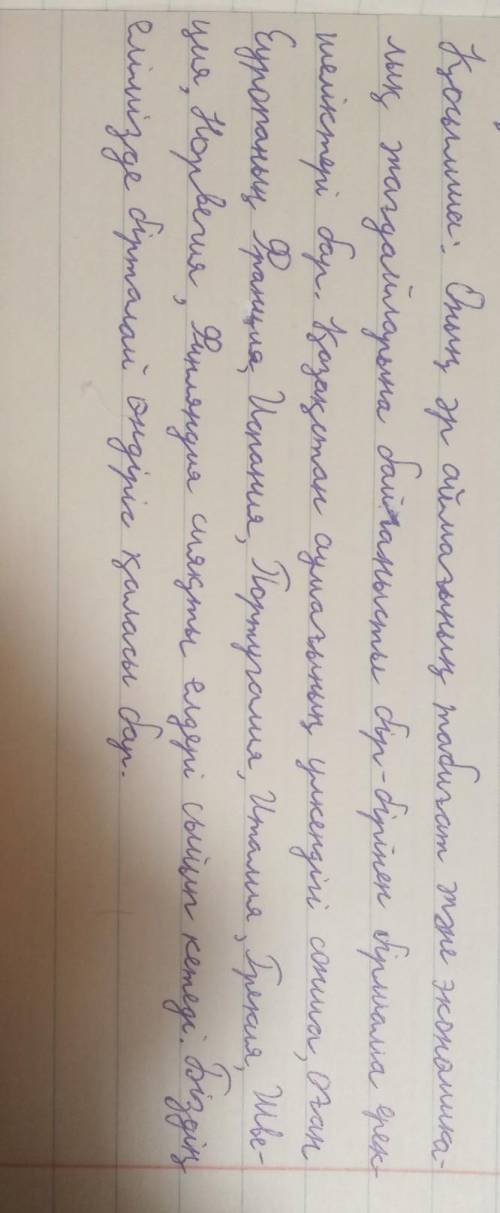 Қосымша: Оның әр аймағының табиғат және экономика-
лық жағдайларына байланысты бір-бірінен біршама ерек
шеліктері бар. Қазақстан аумағының үлкендігі сонша, оған
Еуропаның Франция, Испания, Португалия, Италия, Греция, Шве-
ция, Норвегия, Финляндия сияқты елдері сыйып кетеді. Біздің
елімізде бірталай өндіріс қаласы бар.